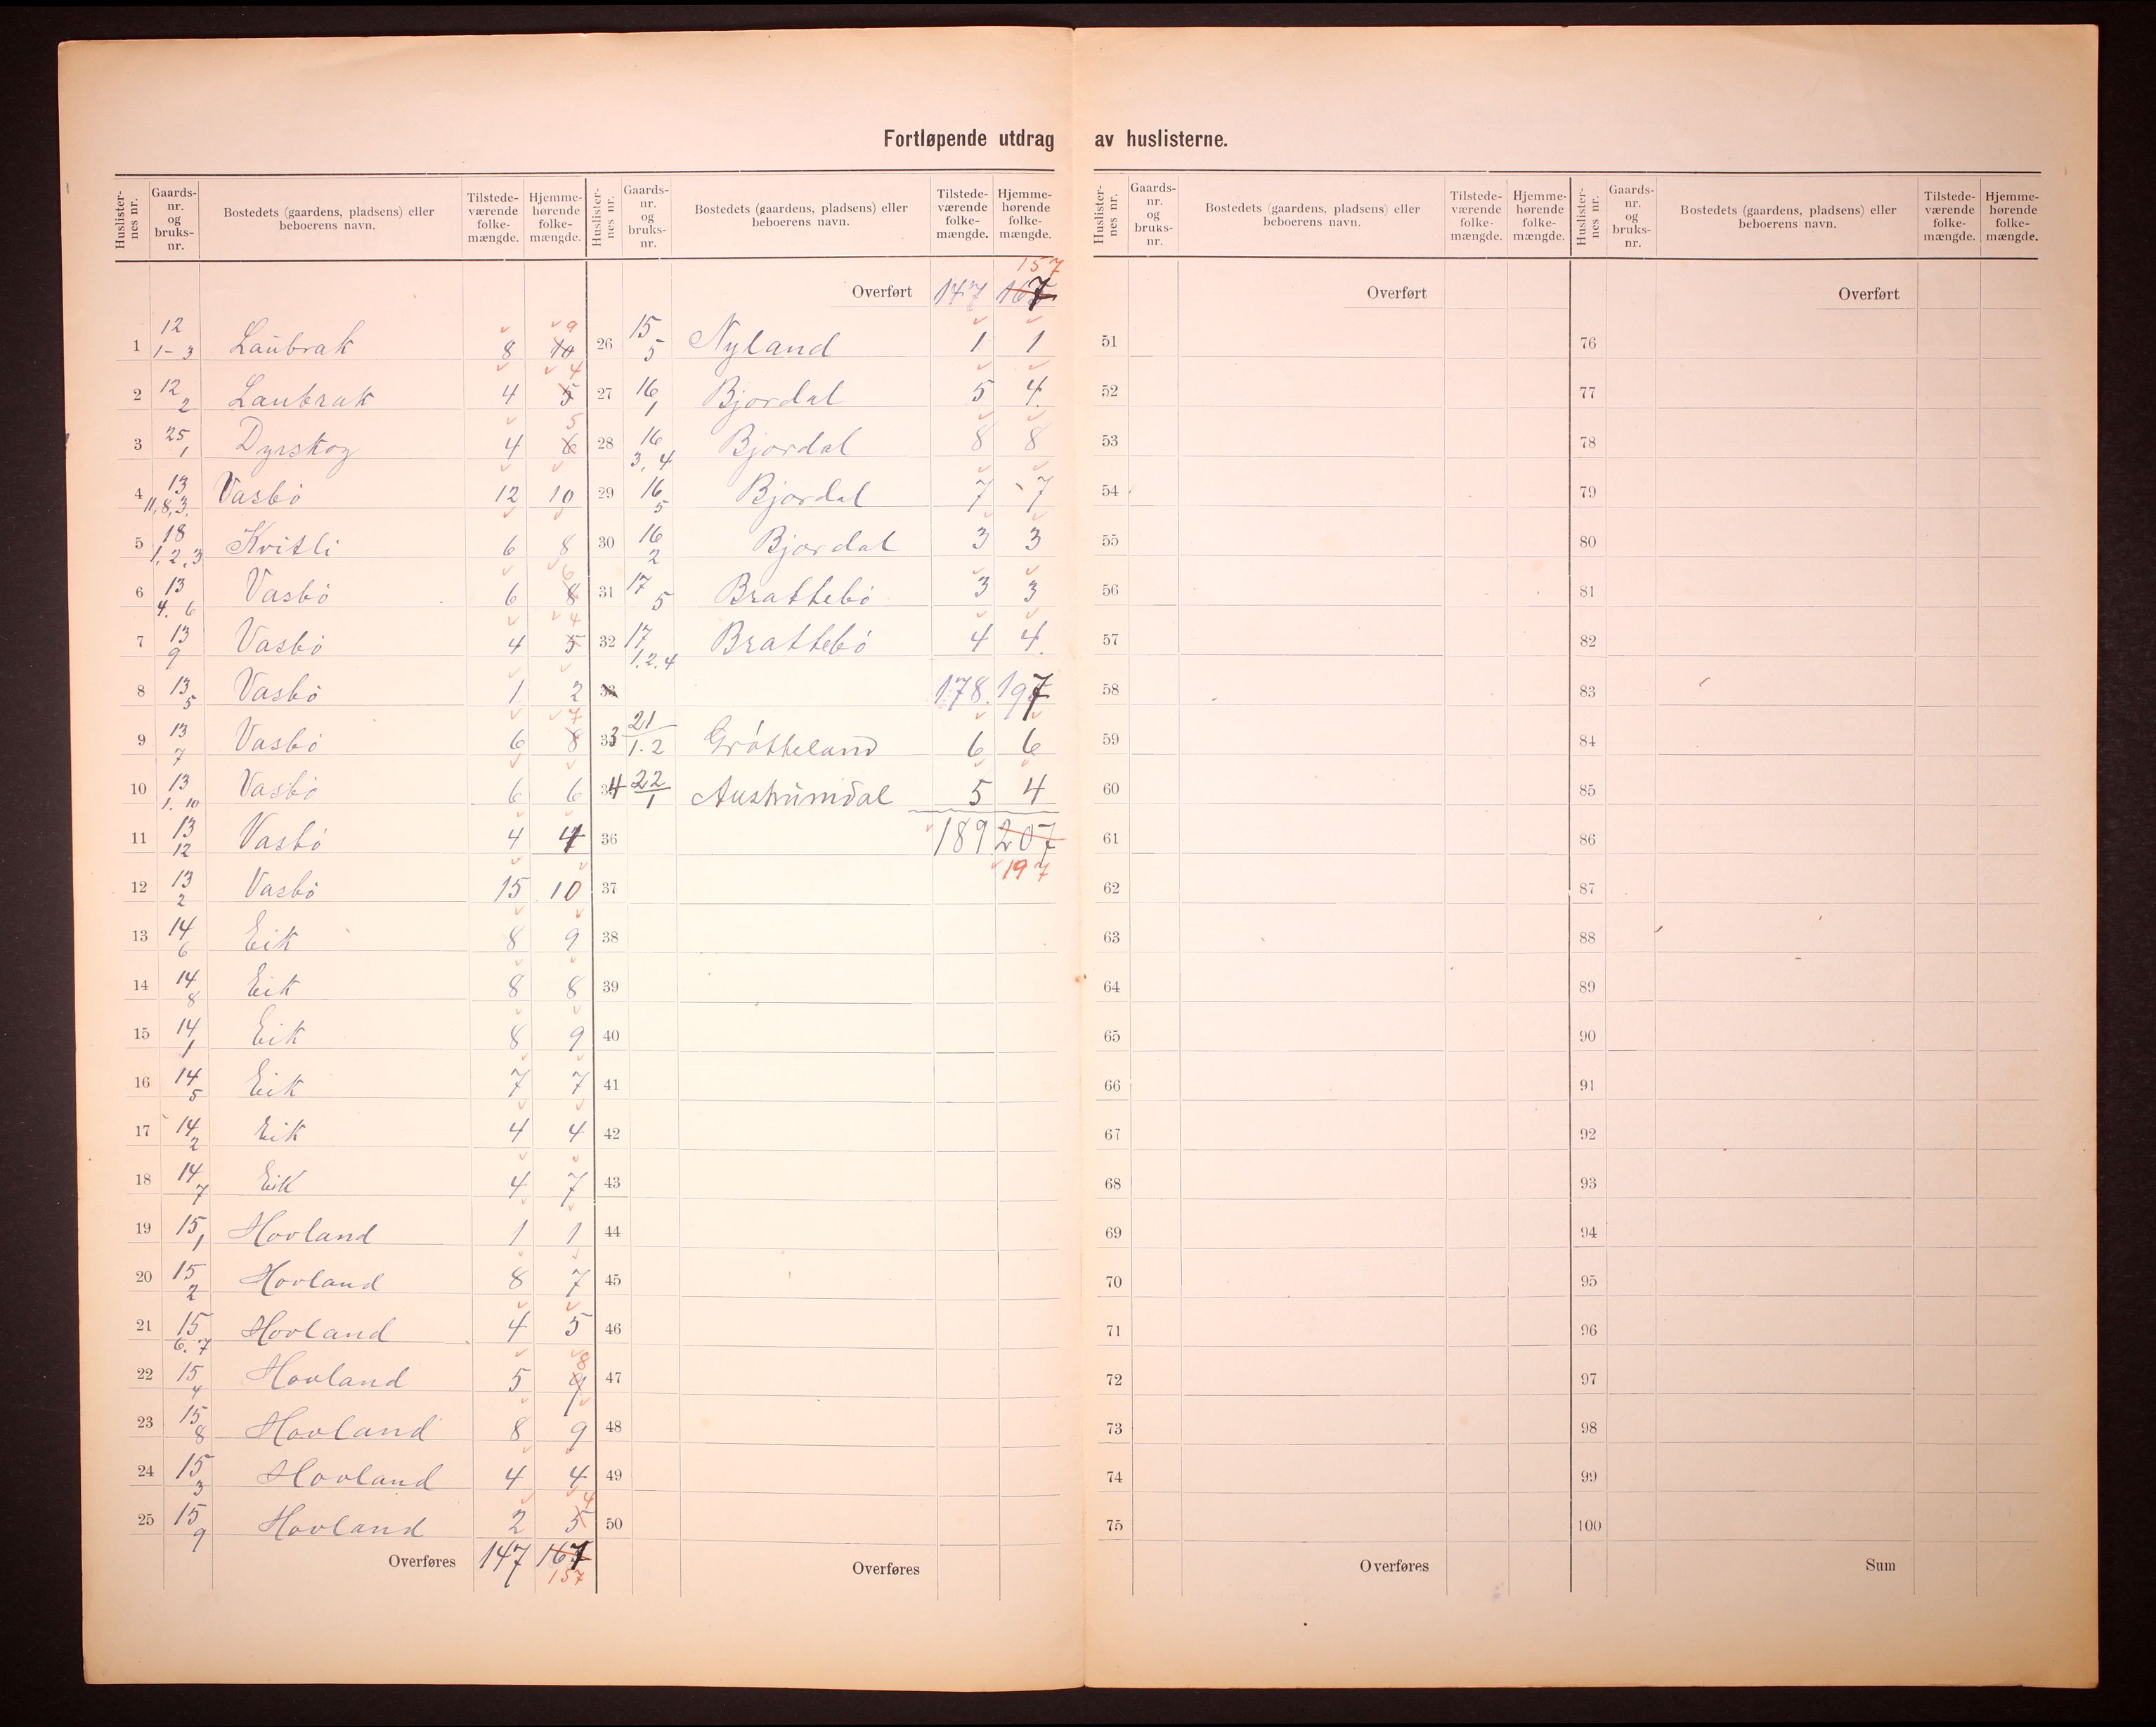 Fortløpende utdrag av huslisterne.
Huslister-nes nr. | Gaards-nr. og bruks-nr. | Bostedets (gaardens, pladsens) eller beboerens navn. | Tilstede-værende folke-mængde. | Hjemme-hørende folke-mængde.
1 | 12 1-3 | Laubrak | 8 | 10 9
2 | 12 2 | Laubrak | 4 | 5 4
3 | 25 1 | Dyrskog | 4 | 6 5
4 | 13 11,8,3. | Vasbö | 12 | 10
5 | 18 1,2,3 | Kvitli | 6 | 8
6 | 13 4. 6 | Vasbö | 6 | 8 6
7 | 13 9 | Vasbö | 4 | 5 4
8 | 13 5 | Vasbö | 1 | 2
9 | 13 7 | Vasbö | 6 | 8 7
10 | 13 1. 10 | Vasbö | 6 | 6
11 | 13 12 | Vasbö | 4 | 4
12 | 13 2 | Vasbö | 15 | 10
13 | 14 6 | Eik | 8 | 9
14 | 14 8 | Eik | 8 | 8
15 | 14 1 | Eik | 8 | 9
16 | 14 5 | Eik | 7 | 7
17 | 14 2 | Eik | 4 | 4
18 | 14 7 | Eik | 4 | 7
19 | 15 1 | Hovland | 1 | 1
20 | 15 2 | Hovland | 8 | 7
21 | 15 6. 7 | Hovland | 4 | 5
22 | 15 4 | Hovland | 5 | 9 8
23 | 15 8 | Hovland | 8 | 9
24 | 15 3 | Hovland | 4 | 4
25 | 15 9 | Hovland | 2 | 5 4
Overføres | 147 | 167 157
Huslister-nes nr. | Gaards-nr. og bruks-nr. | Bostedets (gaardens, pladsens) eller beboerens navn. | Tilstede-værende folke-mængde. | Hjemme-hørende folke-mængde.
Overført | 147 | 167 157
26 | 15 5 | Nyland | 1 | 1
27 | 16 1 | Bjordal | 5 | 4
28 | 16 3, 4 | Bjordal | 8 | 8
29 | 16 5 | Bjordal | 7 | 7
30 | 16 2 | Bjordal | 3 | 3
31 | 17 5 | Brattebö | 3 | 3
32 | 17 1.2.4 | Brattebö | 4 | 4.
33 | 178. | 197
33 | 21 1.2 | Grötteland | 6 | 6
34 | 22 1 | Austrumdal | 5 | 4
36 | 189 | 207
37 | 197
38
39
40
41
42
43
44
45
46
47
48
49
50
Overføres
Huslister-nes nr. | Gaards-nr. og bruks-nr. | Bostedets (gaardens, pladsens) eller beboerens navn. | Tilstede-værende folke-mængde. | Hjemme-hørende folke-mængde.
Overført
51
52
53
54
55
56
57
58
59
60
61
62
63
64
65
66
67
68
69
70
71
72
73
74
75
Overføres
Huslister-nes nr. | Gaards-nr. og bruks-nr. | Bostedets (gaardens, pladsens) eller beboerens navn. | Tilstede-værende folke-mængde. | Hjemme-hørende folke-mængde.
Overført
76
77
78
79
80
81
82
83
84
85
86
87
88
89
90
91
92
93
94
95
96
97
98
99
100
Sum